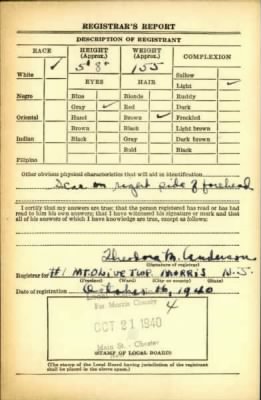 REGISTRAR'S REPORT
DESCRIPTION OF REGISTRANT
RACE HEIGHT (Approx.) WEIGHT (Approx.) COMPLEXION
✓ 5' 8" 155 Sallow
White EYES HAIR Light ✓
Negro Blue Blonde Ruddy
Gray ✓ Red Dark
Oriental Hazel Brown ✓ Freckled
Brown Black Light brown
Indian Black Gray Dark brown
Bald Black
Filipino
Other obvious physical characteristics that will aid in identification
Scar on right side of forehead
I certify that my answers are true; that the person registered has read or has had
read to him his own answers; that I have witnessed his signature or mark and that
all of his answers of which I have knowledge are true, except as follows:
Theodora M. Anderson
(Signature of registrar)
Registrar for #1 MT. OLIVE TWP. MORRIS N.J.
(Precinct) (Ward) (City or county) (State)
Date of registration October 16, 1940
For Morris County
4
OCT 21 1940
Main St. - Chester
STAMP OF LOCAL BOARD
(The stamp of the Local Board having jurisdiction of the registrant
shall be placed in the above space.)